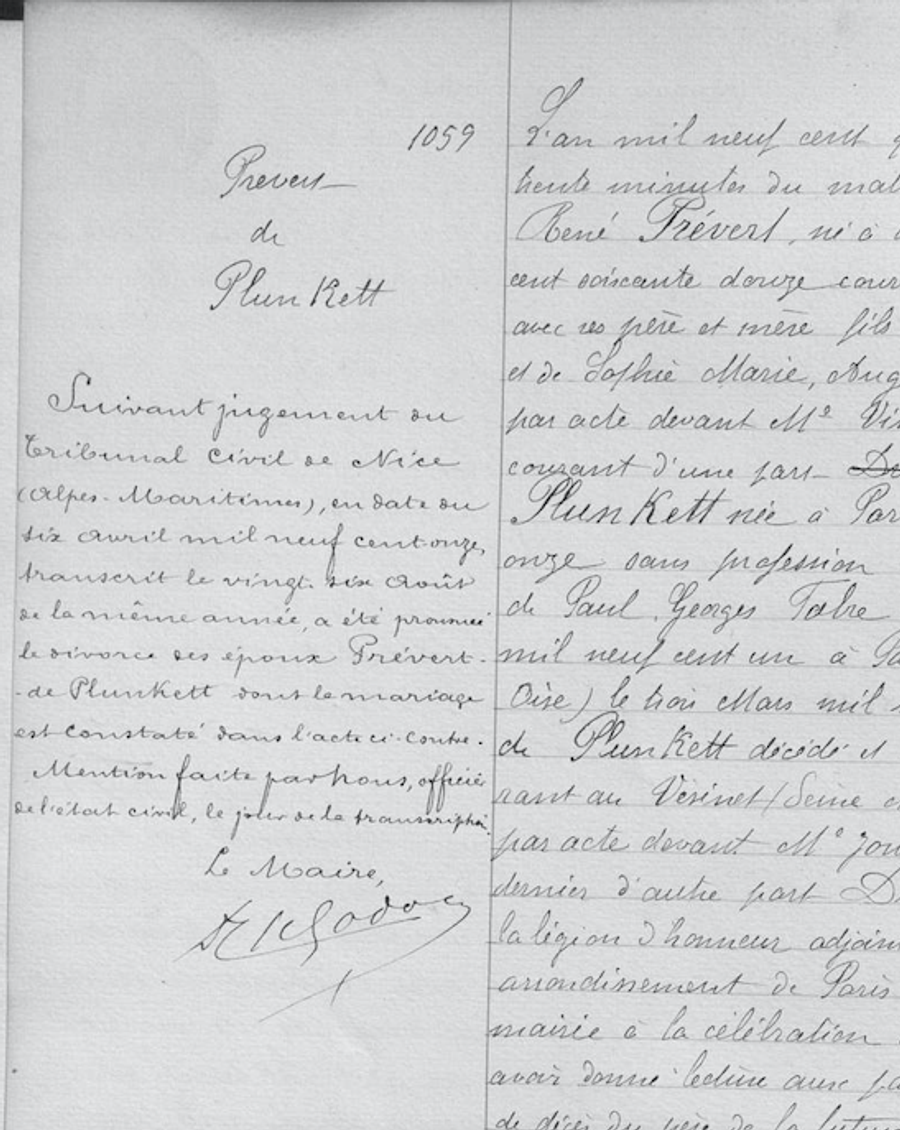 1059
Prévert
de
Plunkett
Suivant jugement du
Tribunal Civil de Nice
(Alpes-Maritimes), en date du
six avril mil neuf cent onze,
transcrit le vingt-six août
de la même année, a été prononcé
le divorce des époux Prévert-
-de Plunkett dont le mariage
est constaté dans l'acte ci-contre.
Mention faite par nous, officier
de l'état civil, le jour de la transcription.
Le Maire,
L'an mil neuf cent
trente minutes du mat
René Prévert, né à
cent soixante douze cour
avec ses père et mère fils
et de Sophie Marie, Aug
par acte devant Me
courant d'une part
Plunkett née à Par
onze sans profession
de Paul Georges Fabre
mil neuf cent un à
Oise) le trois Mars mil
de Plunkett décédé et
rant au Vésinet (Seine
par acte devant Me
dernier d'autre part
la légion d'honneur adjoin
arrondissement de Paris
mairie à la célébration
avoir donné lecture aux pa
de décès du père de la futur